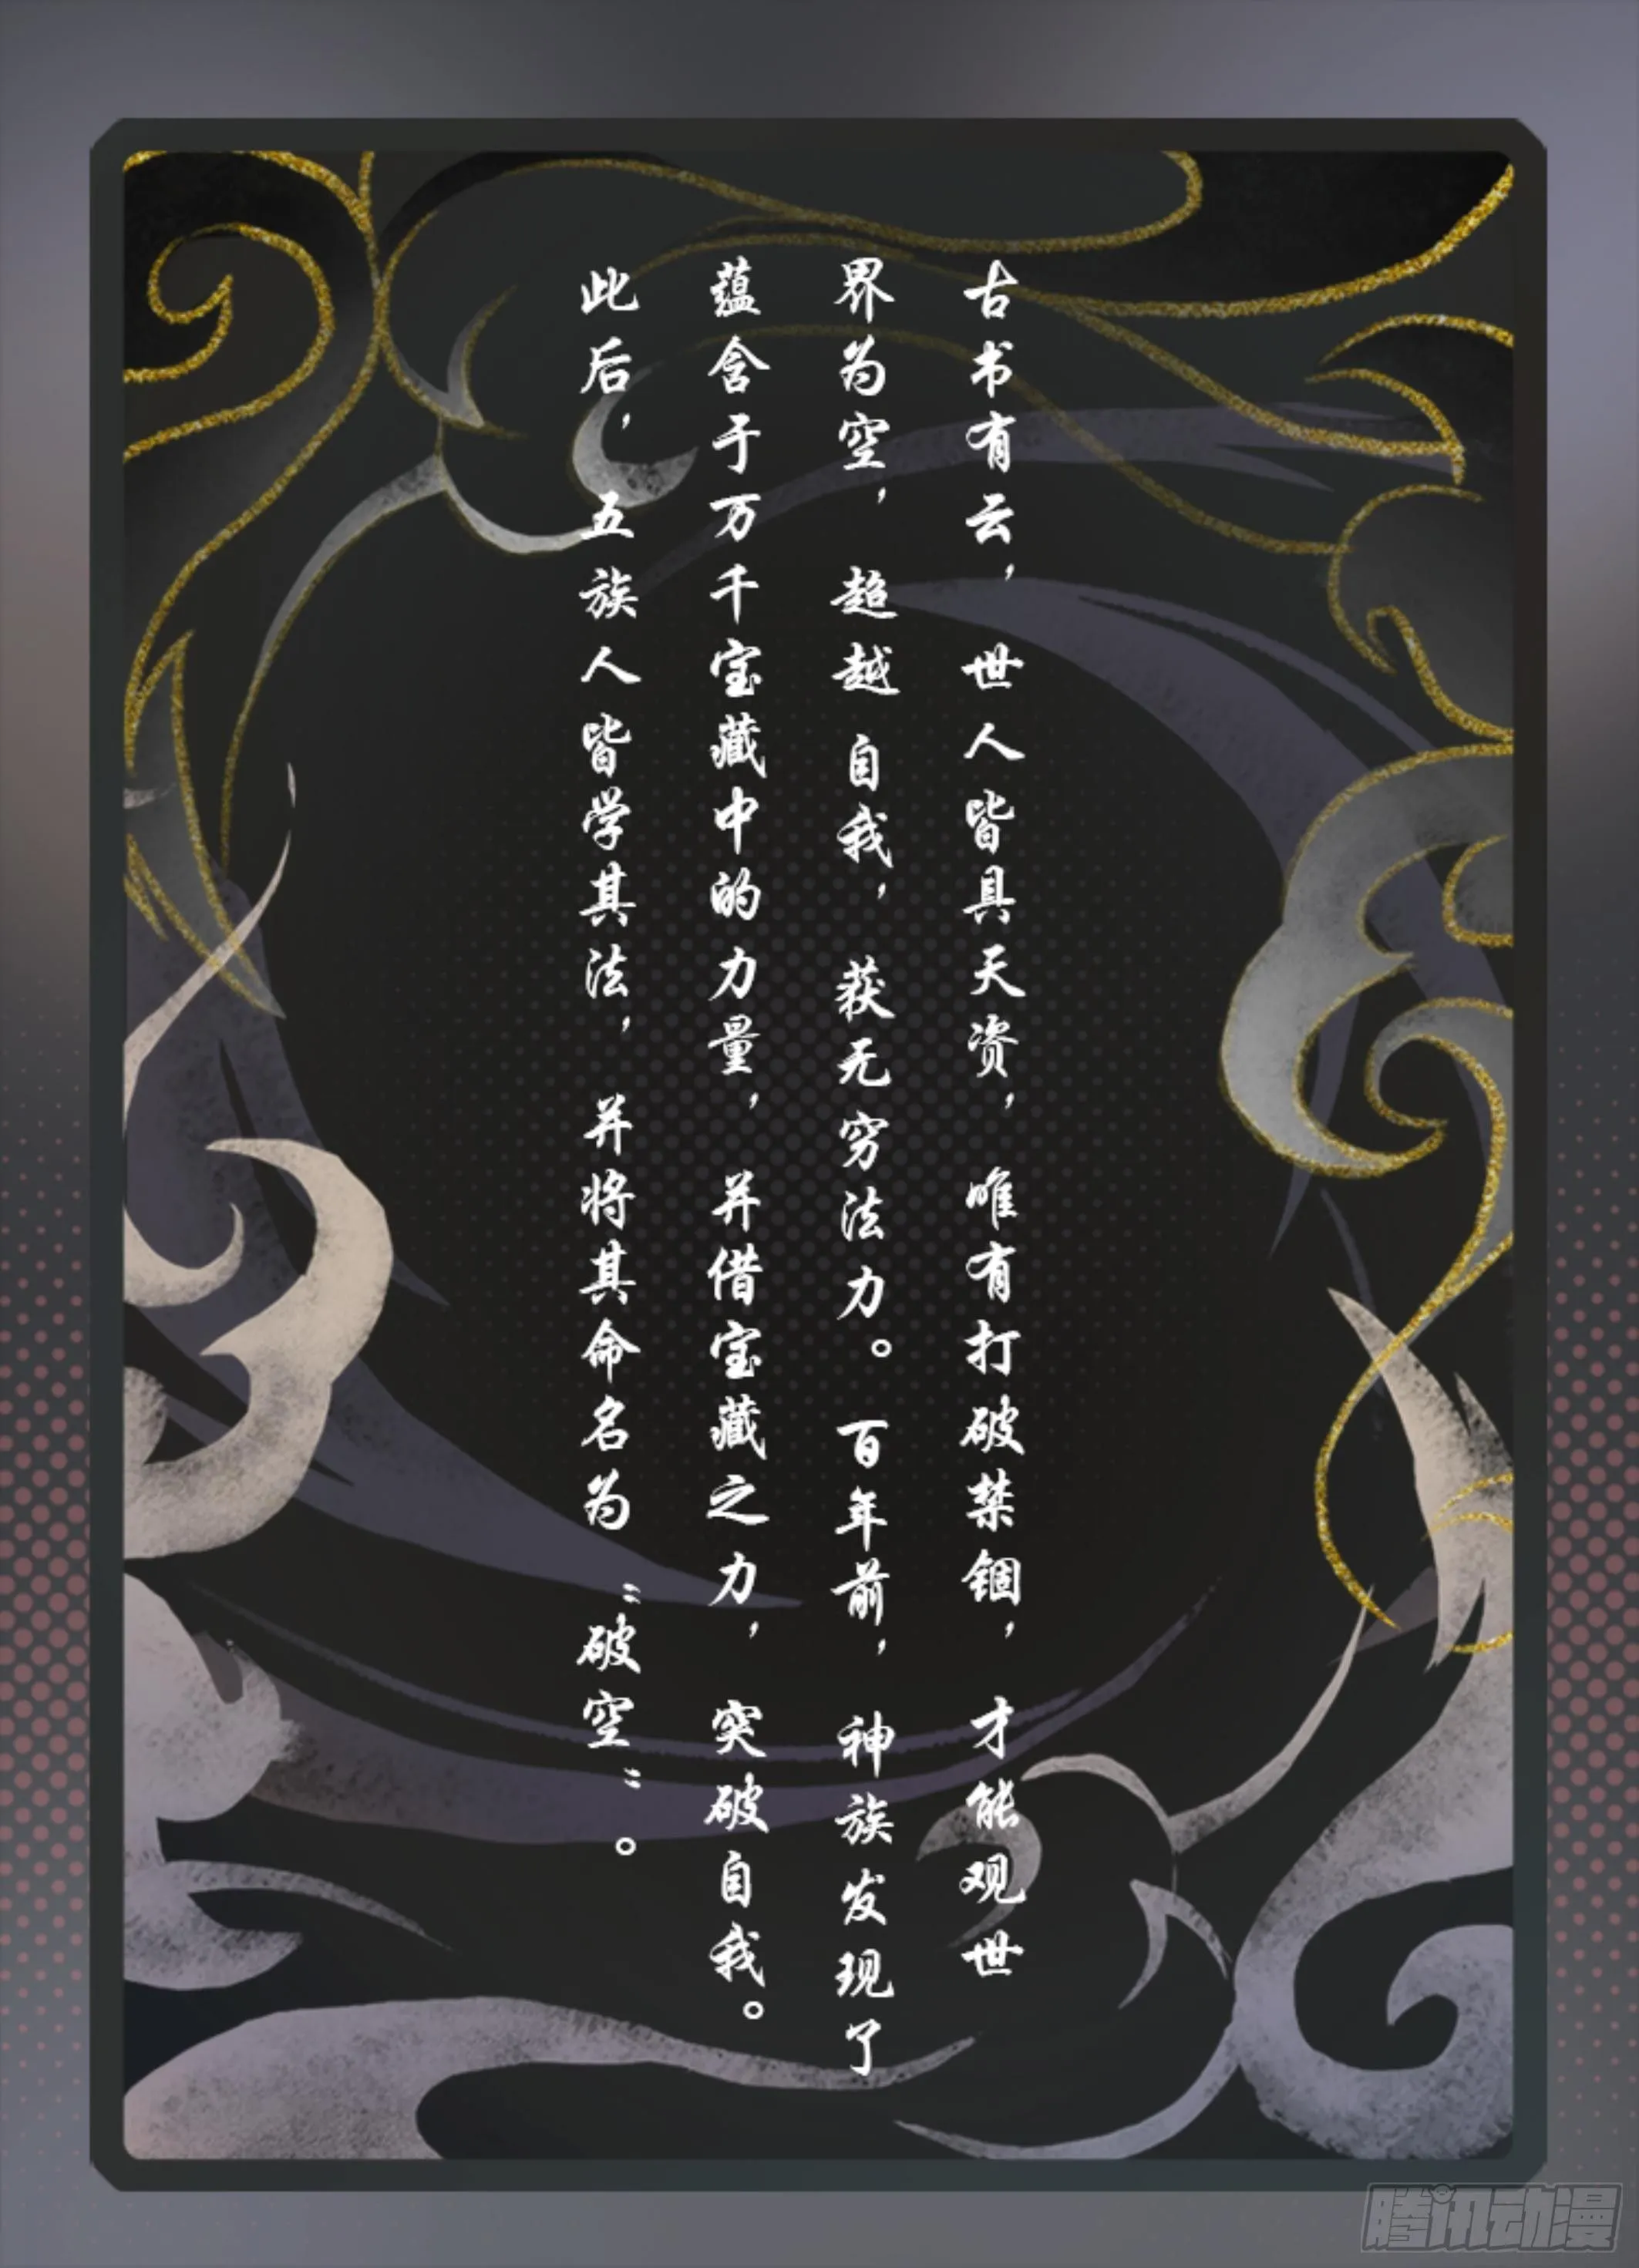 古书有云，世人皆具天资，唯有打破禁锢，才能观世
界为空，超越自我，获无穷法力。百年前，神族发现了
蕴含于万千宝藏中的力量，并借宝藏之力，突破自我。
此后，五族人皆学其法，并将其命名为“破空”。
腾讯动漫